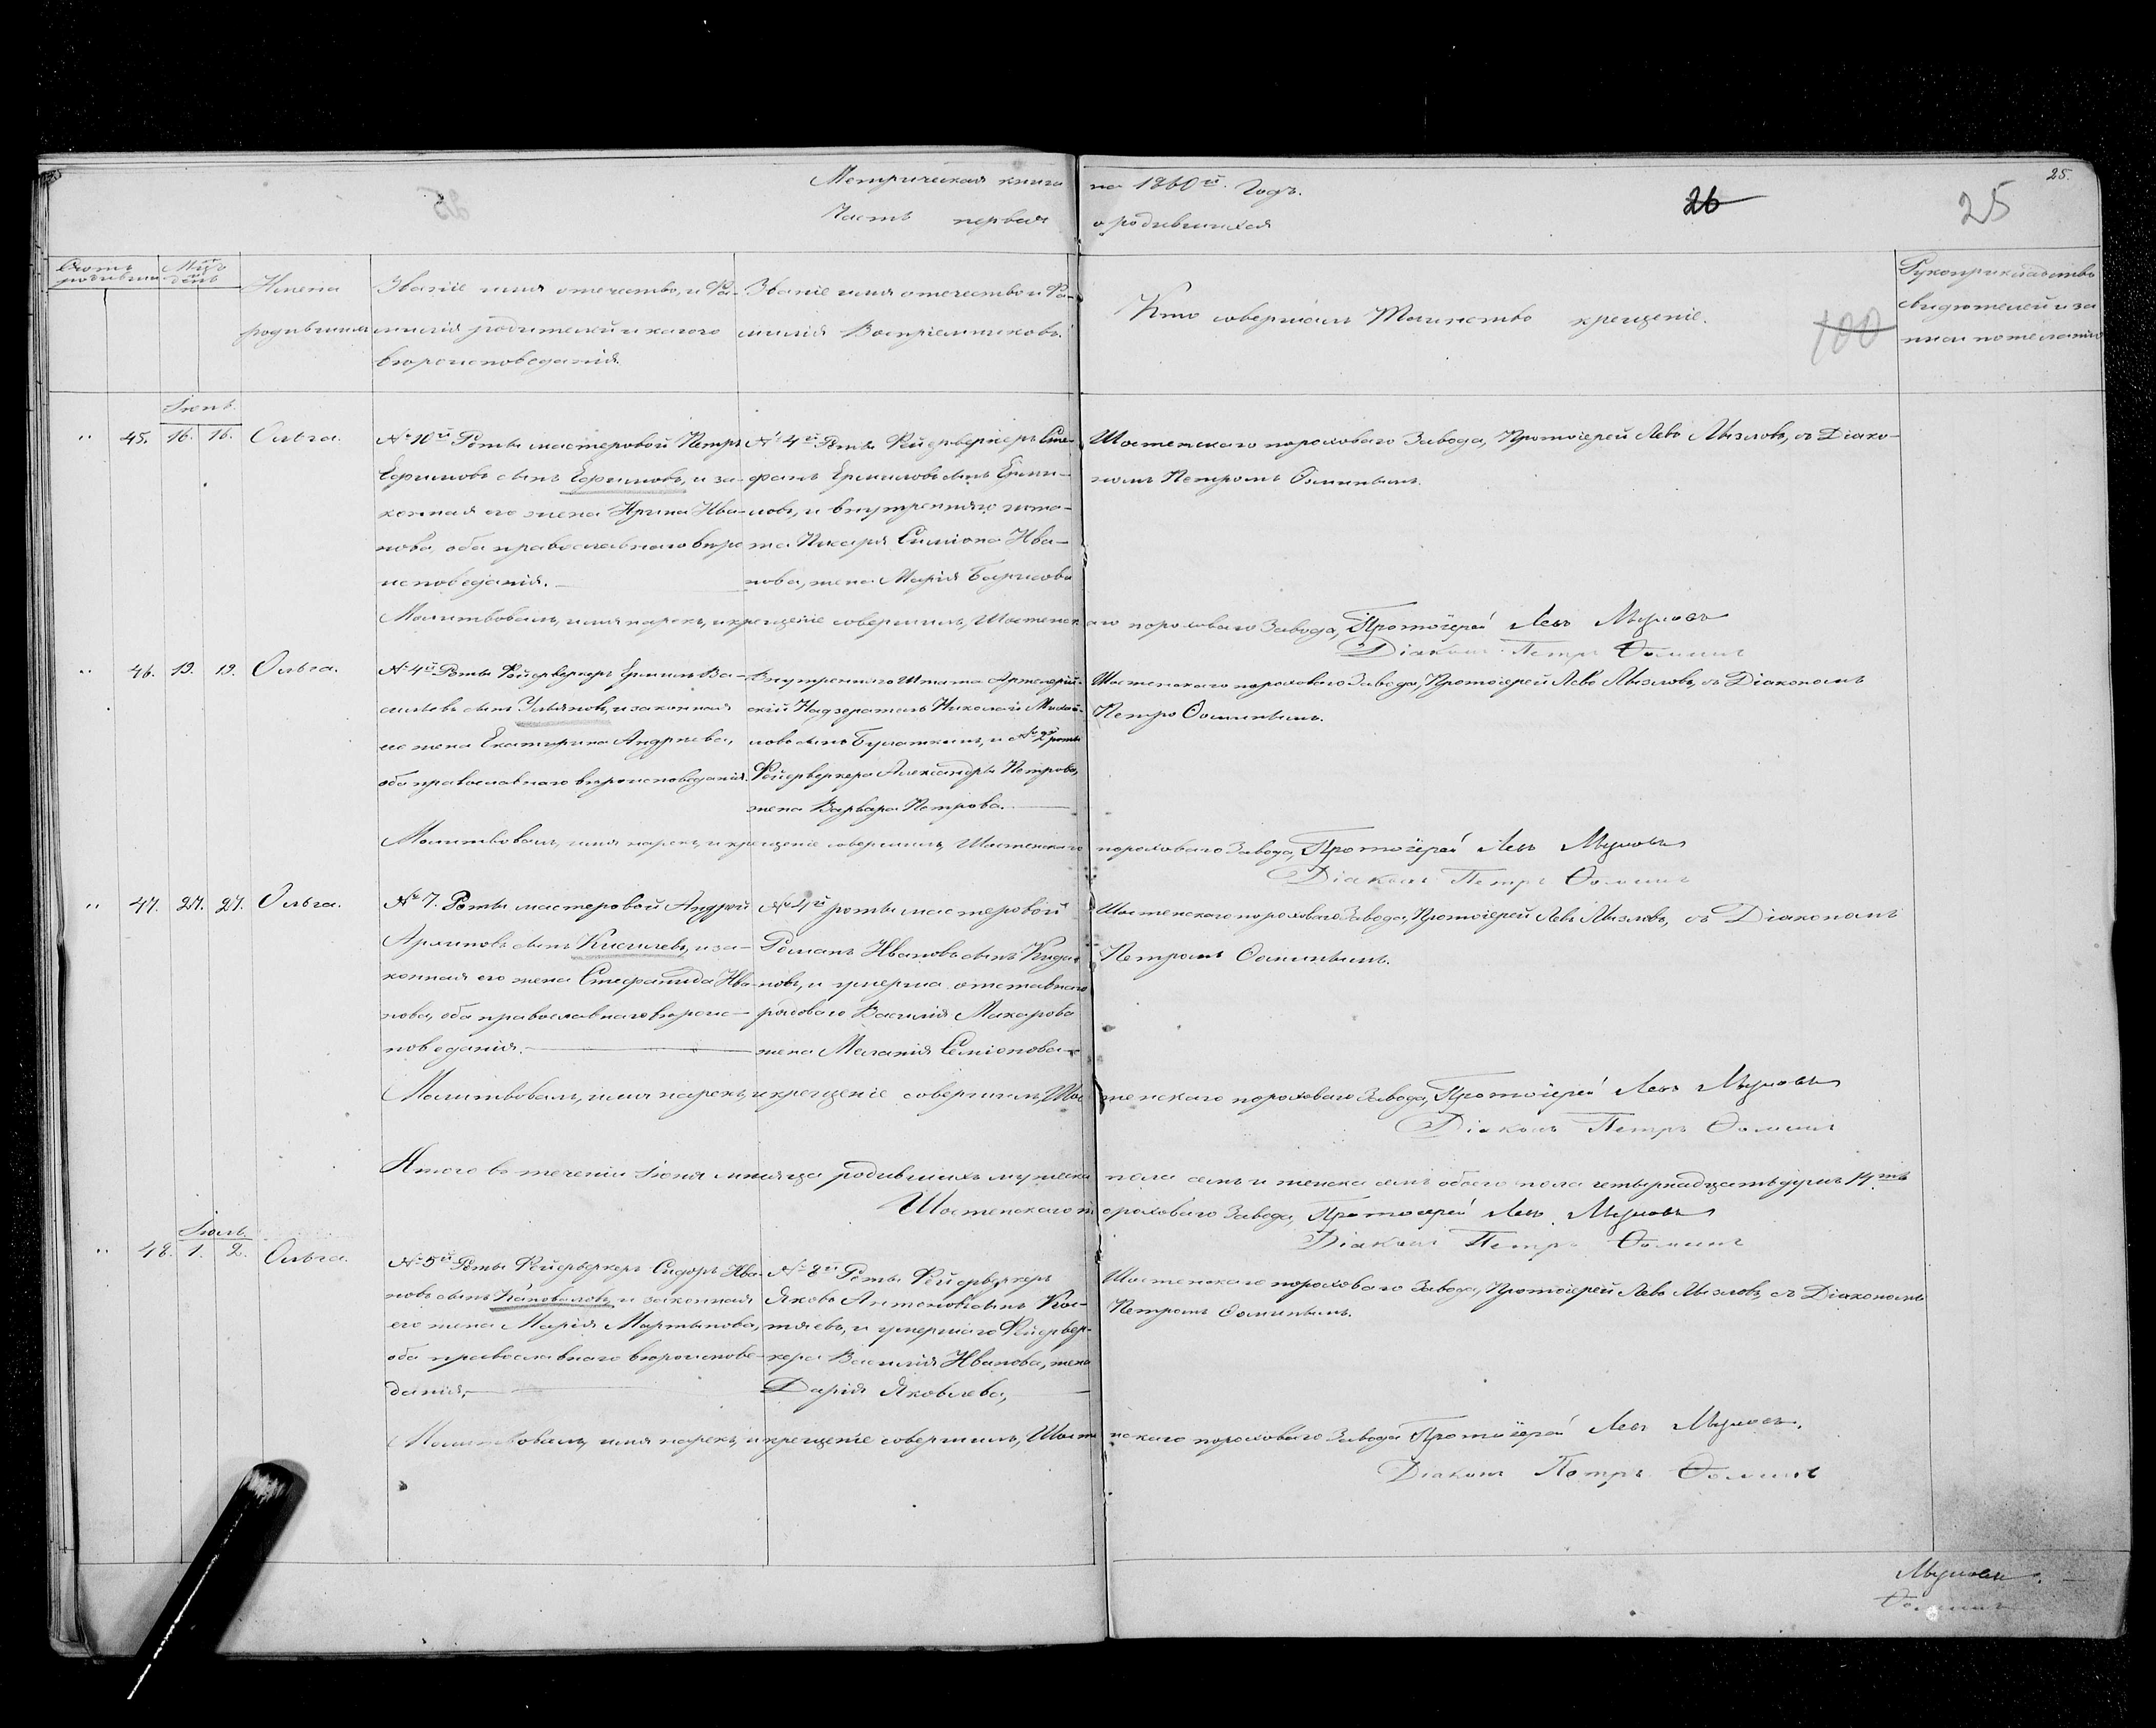 Метрическая книга на 1860й. Годъ.
Часть первая о родившихся
26
25
25.
Счетъ родивших
Мцъ и день
Имена родившихся
Званіе имя отечество, и Фа-
милія родителей и какого
вѣроисповеданія.
Званіе имя отечество и Фа-
милія Воспріемниковъ.
Кто совершалъ Таинство крещеніе.
100
Рукоприкладство
свидѣтелей и за
писи по желанію
Іюнь.
" 45. 16. 16. Ольга.
№ 10й Роты мастеровой Петръ
Ефимовъ сынъ Ефимовъ, и за-
конная его жена Ирина Ива-
нова, оба православнаго вѣро
исповеданія.
№ 4й Роты Фейерверкеръ Сте-
фанъ Ермиловъ сынъ Ерми-
ловъ, и внутренняго шта-
та Писаря Симіона Ива-
нова, жена Марія Барисова
Шостенскаго пороховаго Завода, Протоіерей Левъ Мызловъ, съ Діако-
номъ Петромъ Ѳоминымъ.
Молитвовалъ, имя нарекъ, и крещеніе совершилъ, Шостенскаго пороховаго Завода, Протоіерей Левъ Мызловъ
Діаконъ Петръ Ѳоминъ
" 46. 19. 19. Ольга.
№ 4й Роты Фейерверкеръ Ермилъ Ва-
сильевъ сынъ Ульяновъ, и законная
его жена Екатерина Андреева,
оба православнаго вѣроисповеданія.
Внутренняго Штата Артелерій-
скій Надзератель Николай Михай-
ловъ сынъ Булаткинъ, и № 2й роты
Фейерверкера Александра Петрова,
жена Варвара Петрова.
Шостенскаго пороховаго Завода, Протоіерей Левъ Мызловъ, съ Діакономъ
Петро Ѳоминымъ.
Молитвовалъ, имя нарекъ, и крещеніе совершилъ, Шостенскаго пороховаго Завода, Протоіерей Левъ Мызловъ
Діаконъ Петръ Ѳоминъ
" 47. 27. 27. Ольга.
№ 7. Роты мастеровой Андрей
сынъ Киселевъ, и за-
конная его жена Стефанида Ива-
нова, оба православнаго вѣроис-
поведанія.
№ 4й роты мастеровой
Романъ Ивановъ сынъ
и умерша отставнаго
рядоваго Василія Макарова
жена Маланія Семіонова
Шостенскаго пороховаго Завода, Протоіерей Левъ Мызловъ, съ Діакономъ
Петромъ Ѳоминымъ.
Молитвовалъ, имя нарекъ, и крещеніе совершилъ, Шостенскаго пороховаго Завода, Протоіерей Левъ Мызловъ
Діаконъ Петръ Ѳоминъ
Итого въ теченіи Іюня мѣсяца родившихъ мужеска пола семь и женска семь обоего пола четырнадцать душъ 14ть
Шостенскаго пороховаго Завода, Протоіерей Левъ Мызловъ
Діаконъ Петръ Ѳоминъ
Іюль.
" 48. 1. 2. Ольга.
№ 5й Роты Фейерверкеръ Сидоръ Ива-
новъ сынъ Коноваловъ, и законная
его жена Марія Мартынова,
оба православнаго вѣроиспове-
данія,
№ 8й Роты Фейерверкеръ
Яковъ Антоновъ сынъ Кос-
тяевъ, и умершаго Фейервер-
кера Василія Иванова, жена
Дарія Яковлева,
Шостенскаго пороховаго Завода, Протоіерей Левъ Мызловъ, съ Діакономъ
Петромъ Ѳоминымъ.
Молитвовалъ, имя нарекъ, и крещеніе совершилъ, Шостенскаго пороховаго Завода Протоіерей Левъ Мызловъ.
Діаконъ Петръ Ѳоминъ
Мызловъ.
Ѳоминъ